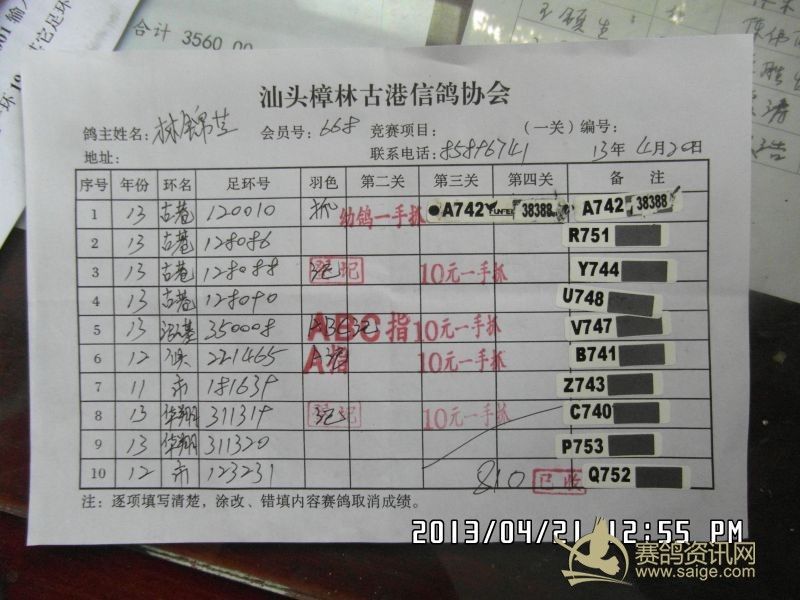 合计 3560.00
汕头樟林古港信鸽协会
鸽主姓名: 林锦芝 会员号: 668 竞赛项目: (一关)编号:
地址: 联系电话: 85896741 13年4月20日
序号 年份 环名 足环号 羽色 第二关 第三关 第四关 备 注
1 13 古巷 120010 抓 幼鸽一手抓 A742 38388 A742 38388
2 13 古巷 128086 R751
3 13 古巷 128088 记 10元一手抓 Y744
4 13 古巷 128090 U748
5 13 350008 ABC指 10元一手抓 V747
6 12 221465 A指 10元一手抓 B741
7 11 市 181639 Z743
8 13 华翔 311319 记 10元一手抓 C740
9 13 华翔 311320 P753
10 12 市 123231 810 Q752
注:逐项填写清楚,涂改、错填内容赛鸽取消成绩。
2013/04/21 12:55 PM
赛鸽资讯网
www.saige.com